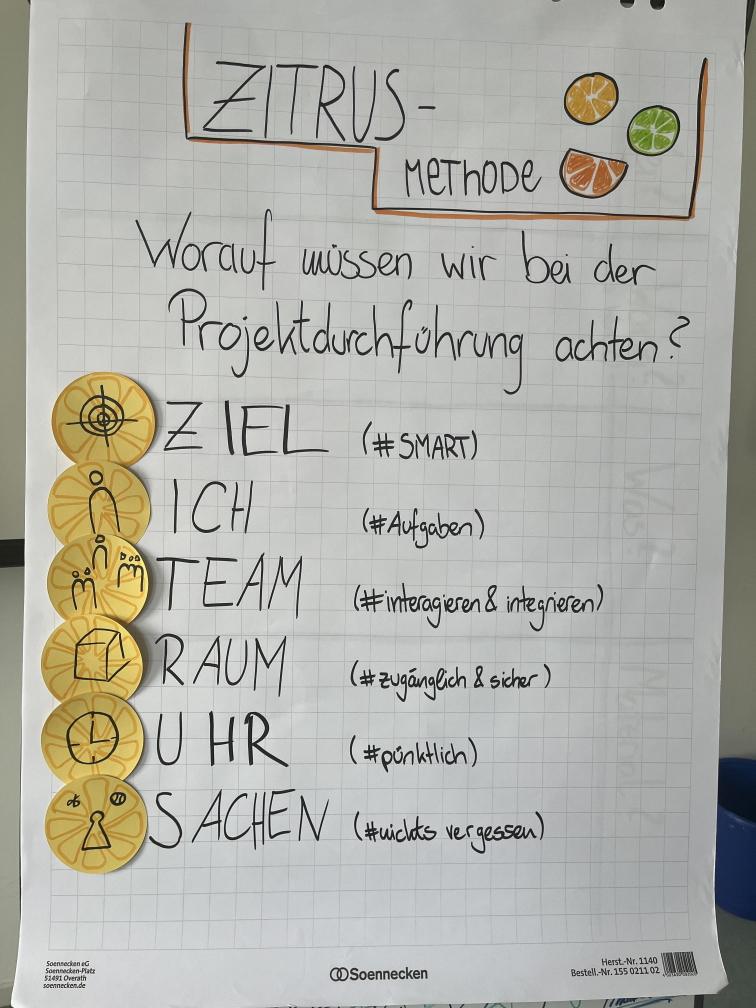 ZITRUS-
METHODE
Worauf müssen wir bei der
Projektdurchführung achten?
ZIEL (#SMART)
ICH (#Aufgaben)
TEAM (#interagieren & integrieren)
RAUM (#zugänglich & sicher)
UHR (#pünktlich)
SACHEN (#nichts vergessen)
Soennecken eG
Soennecken-Platz
51491 Overath
soennecken.de
Soennecken
Herst.-Nr. 1140
Bestell.-Nr. 155 0211 02